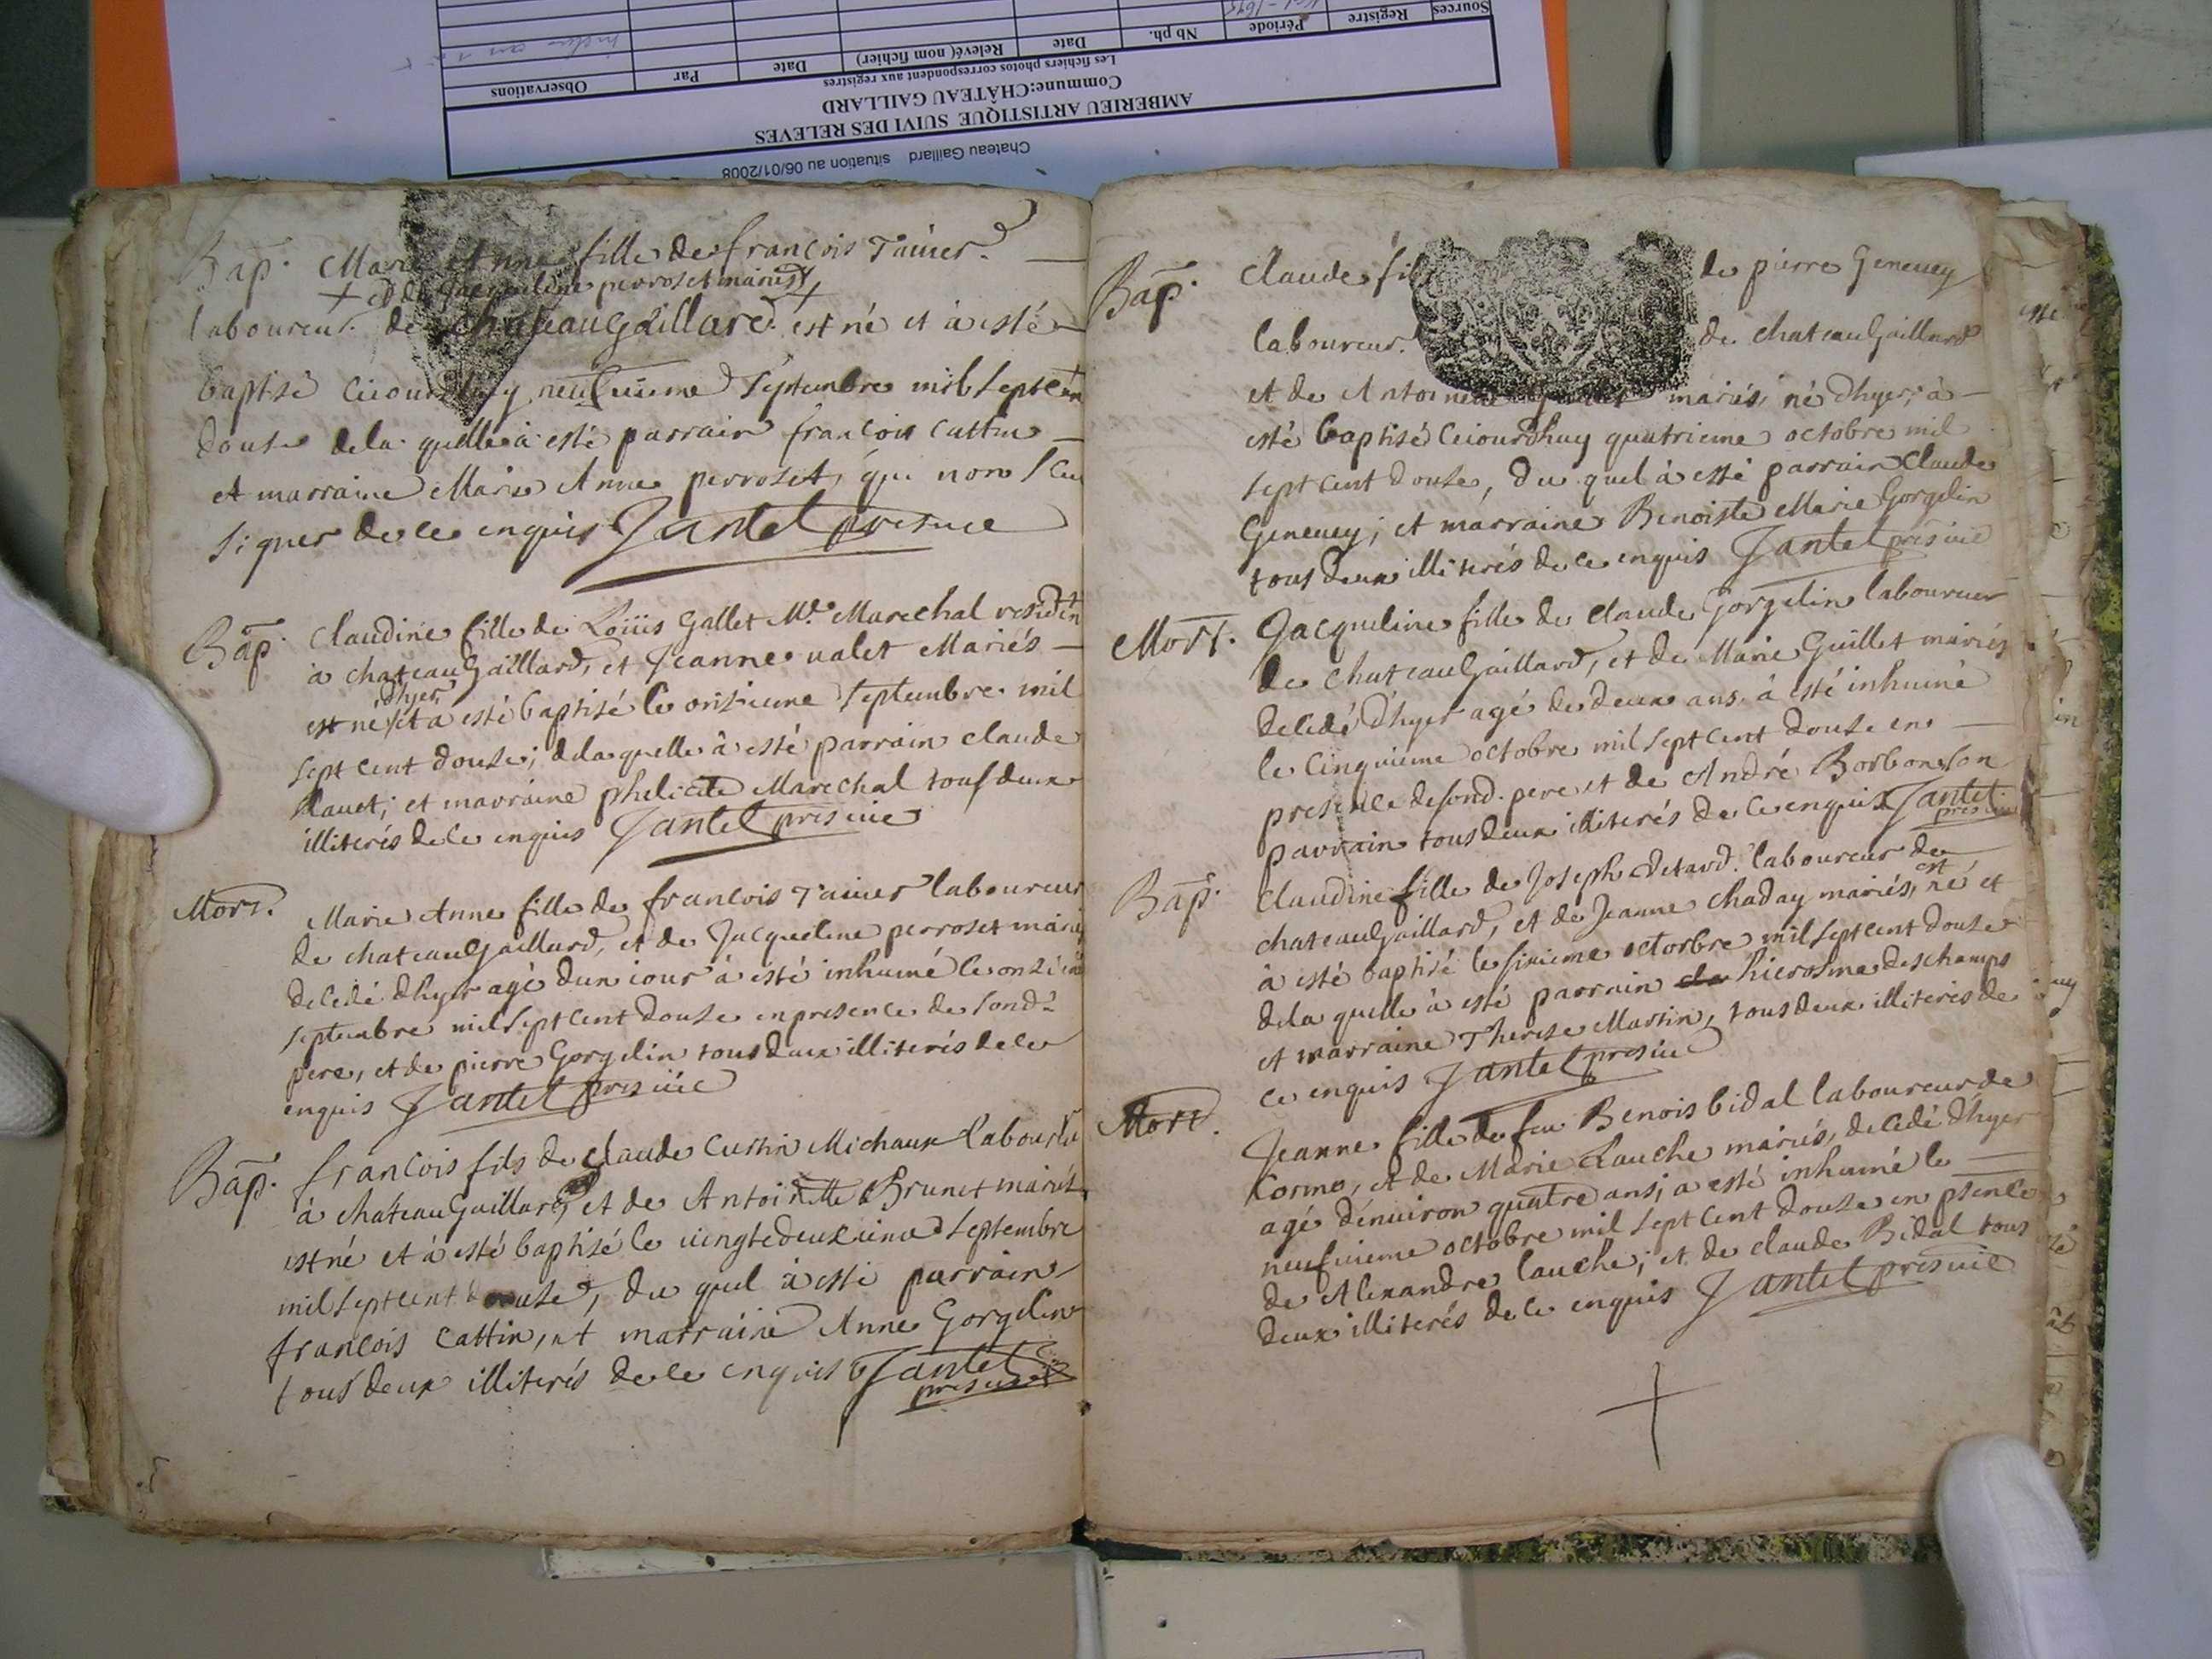 Chateau Gaillard situation au 06/01/2008
AMBERIEU ARTISTIQUE SUIVI DES RELEVES
Commune:CHÂTEAU GAILLARD
Les fichiers photos correspondent aux registres
Sources Registre Période Nb ph. Date Relevé( nom fichier) Date Par Observations
Bap. Marie Anne fille de francois Tauier.
+ et de Jacqueline perroset mariés +
laboureur. de chateaugaillard est né et à esté
baptisé ceiourdhuy neufuieme septembre mil sept cen
douse de la quelle à esté parrain francois cattin
et marraine Marie Anne perroset, qui non sceu
signer de ce enquis Jantet presuie
Bap. Claudine fille de Loüis Gallet Me. Marechal residen
à chateaugaillard, et Jeanne ualet Mariés
dhyer
est né et a esté baptisé le onsieme septembre mil
sept cent douse; de la quelle à esté parrain claude
et marraine phelicite Marechal tous deux
illiterés de ce enquis Jantet presuie
Mort. Marie Anne fille de francois Tauier laboureur
de chateaugaillard, et de Jacqueline perroset mariés
decedé dhyer agé dun iour à esté inhumé le onsiem
septembre mil sept cent douse en presence de sond.
pere, et de pierre Gorgelin tous deux illiterés de ce
enquis Jantet presuie
Bap. francois fils de claude Cuttin Michaux laboureur
à chateaugaillard, et de Antoinette Brunet mariés
est né et à esté baptisé le uingtedeuxieme septembre
mil sept cent douse, du quel à esté parrain
francois cattin, et marraine Anne Gorgelin
tous deux illiterés de ce enquis Jantet
presuie
Bap. claude fils de pierre Geneuey
laboureur. de chateaugaillard
et de Antoinette mariés, né dhyer, à
esté baptisé ceiourdhuy quatrieme octobre mil
sept cent douse, du quel à esté parrain claude
Geneuey; et marraine Benoiste Marie Gorgelin
tous deux illiterés de ce enquis Jantet presuie
Mort. Jacqueline fille de claude Gorgelin laboureur
de chateaugaillard, et de Marie Guillet mariés
decedé dhyer agé de deux ans. à esté inhumé
le cinquieme octobre mil sept cent douse en
presence de sond. pere et de André Borbon son
parrain tous deux illiterés de ce enquis Jantet
presuie
Bap. claudine fille de Joseph Detard. laboureur de
chateaugaillard, et de Jeanne chaday mariés, est né et
à esté baptisé le sixieme octorbre mil sept cent douse
de la quelle à esté parrain hierosme deschamps
et marraine Therese Martin, tous deux illiterés de
ce enquis Jantet presuie
Mort. Jeanne fille de feu Benois bidal laboureur de
Cormo, et de Marie Lauche mariés, decedé dhyer
agé denuiron quatre ans; a esté inhumé le
neufuieme octobre mil sept cent douse en psence
de Alexandre lauche; et de claude Bidal tous
deux illiterés de ce enquis Jantet presuie